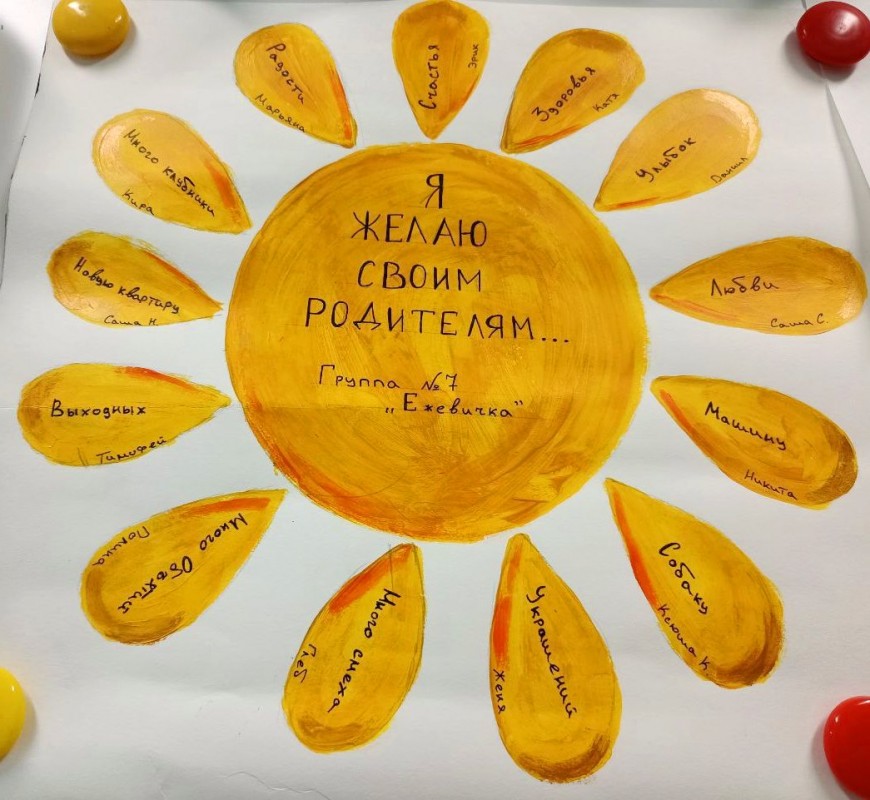 Я
ЖЕЛАЮ
СВОИМ
РОДИТЕЛЯМ...
Группа №7
„Ежевичка"
Счастья
Эрик
Здоровья
Катя
Улыбок
Даниил
Любви
Саша С.
Машину
Никита
Собаку
Ксюша К
Украшений
Женя
Много смеха
Глеб
Много Объятий
Полина
Выходных
Тимофей
Новую квартиру
Саша Н.
Много клубники
Кира
Радости
Марьяна